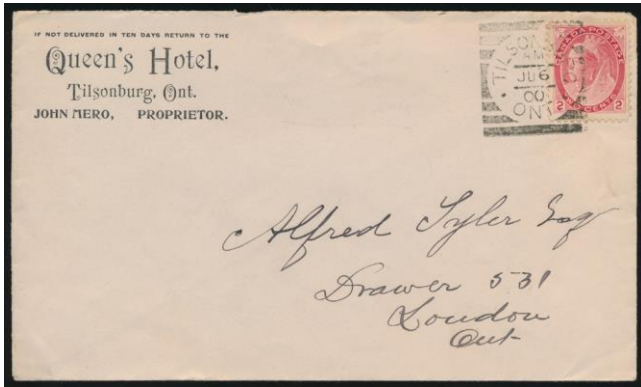 IF NOT DELIVERED IN TEN DAYS RETURN TO THE
Queen's Hotel,
Tilsonburg, Ont.
JOHN MERO, PROPRIETOR.
AM
JU 6
00
ONT
CANADA POSTAGE
2 CENTS 2
Alfred Tyler Esq
Drawer 531
London
Ont